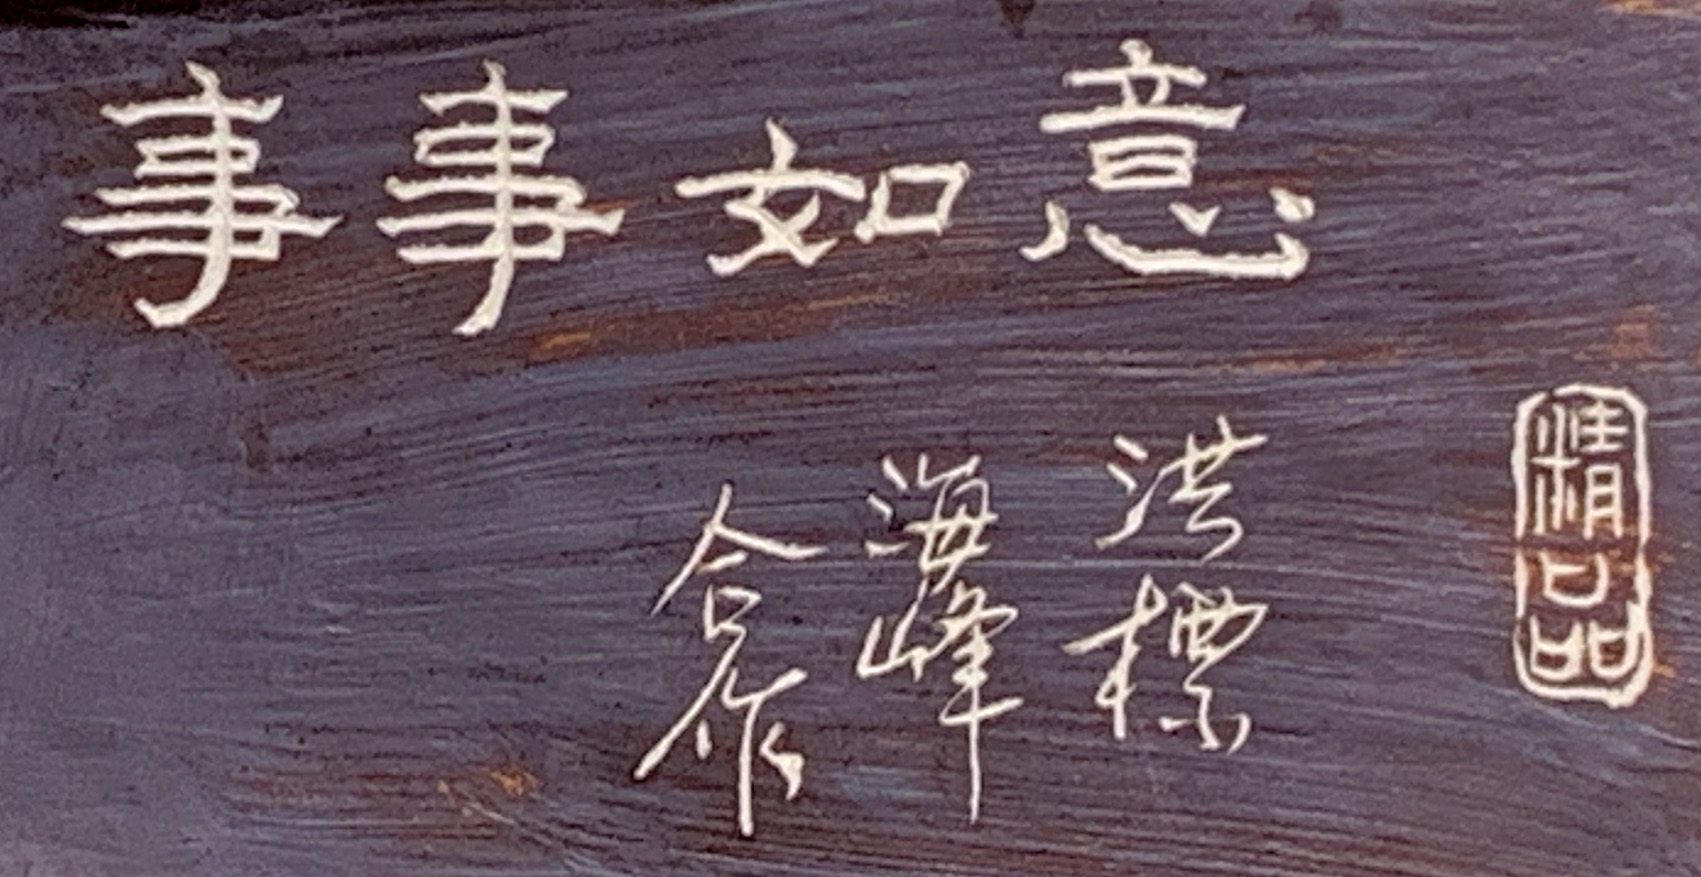 事事如意
洪標
海峰
合作
精品